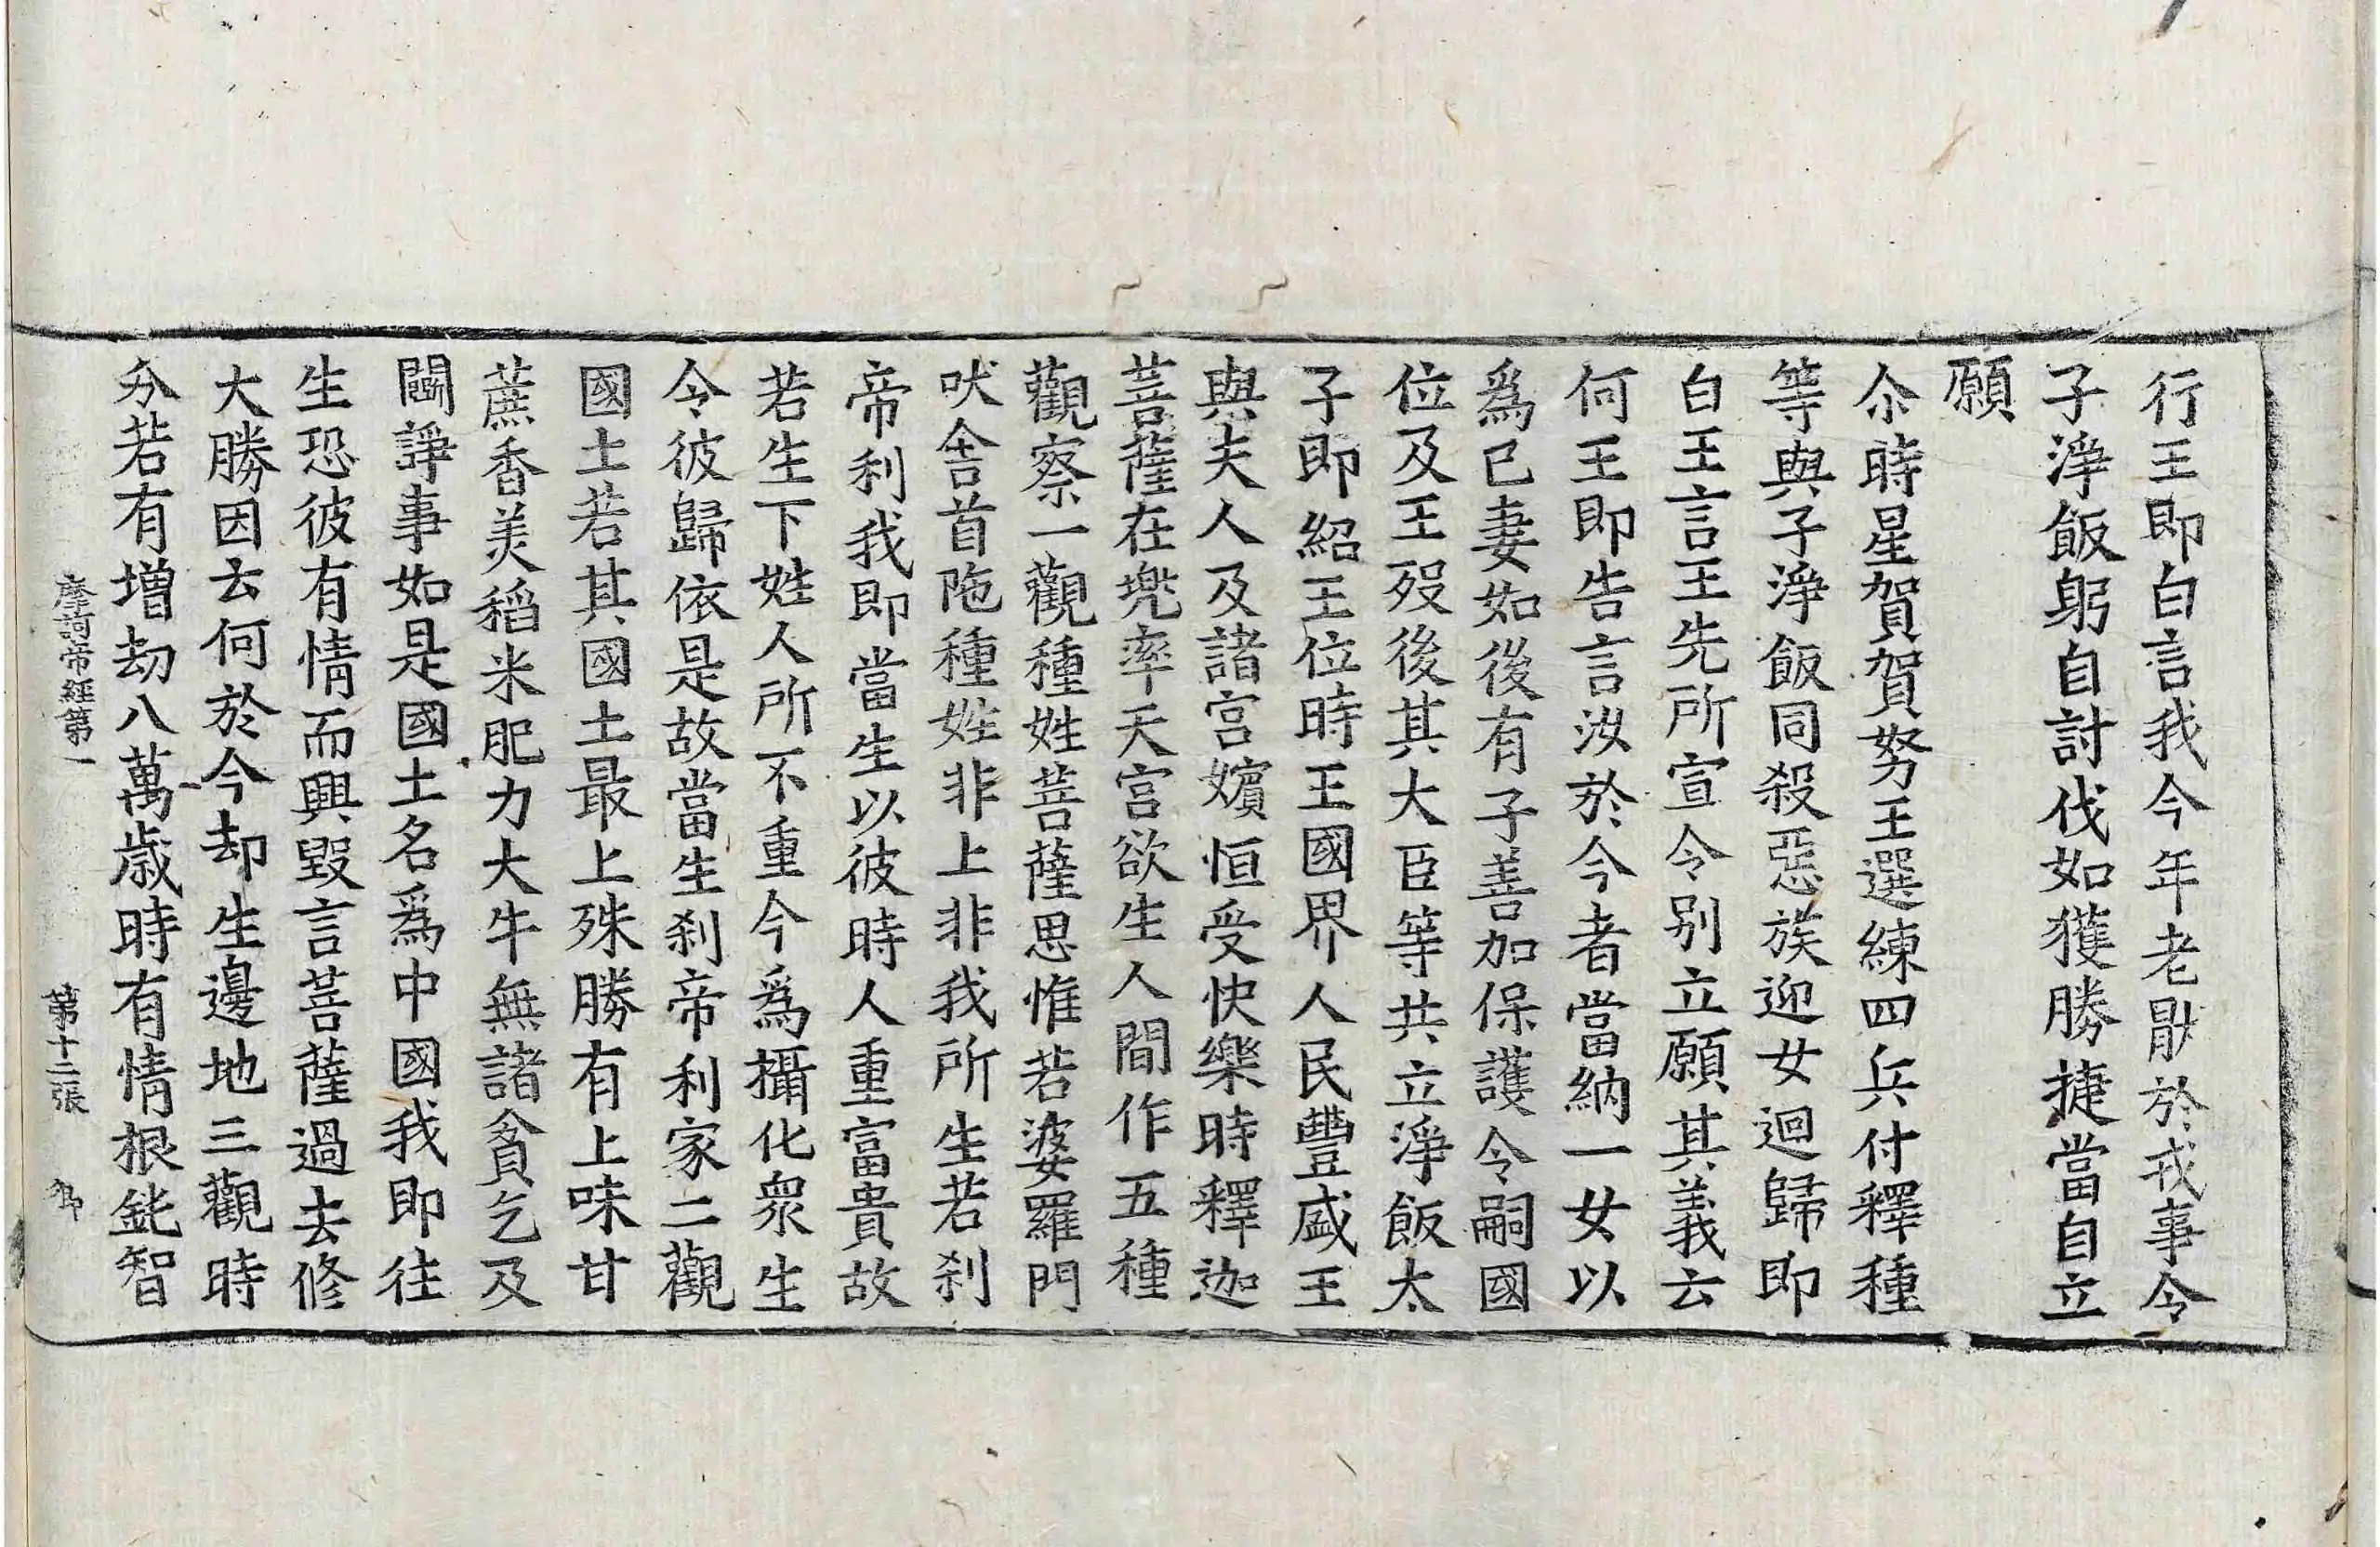 行王即白言我今年老猒於戎事令
子淨飯躬自討伐如獲勝捷當自立
願
尒時星賀賀努王選練四兵付釋種
等與子淨飯同殺惡族迎女迴歸即
白王言王先所宣令别立願其義云
何王即告言汝於今者當納一女以
爲已妻如後有子善加保護令嗣國
位及王歿後其大臣等共立淨飯太
子即紹王位時王國界人民豐盛王
與夫人及諸宮嬪恒受快樂時釋迦
菩薩在兠率天宮欲生人間作五種
觀察一觀種姓菩薩思惟若婆羅門
吠舍首陁種姓非上非我所生若刹
帝利我即當生以彼時人重富貴故
若生下姓人所不重今爲攝化衆生
令彼歸依是故當生刹帝利家二觀
國土若其國土最上殊勝有上味甘
蔗香美稻米肥力大牛無諸貧乞及
鬪諍事如是國土名爲中國我即往
生恐彼有情而興毀言菩薩過去修
大勝因云何於今却生邊地三觀時
分若有增劫八萬歲時有情根鈍智
摩訶帝經第一 第十二張